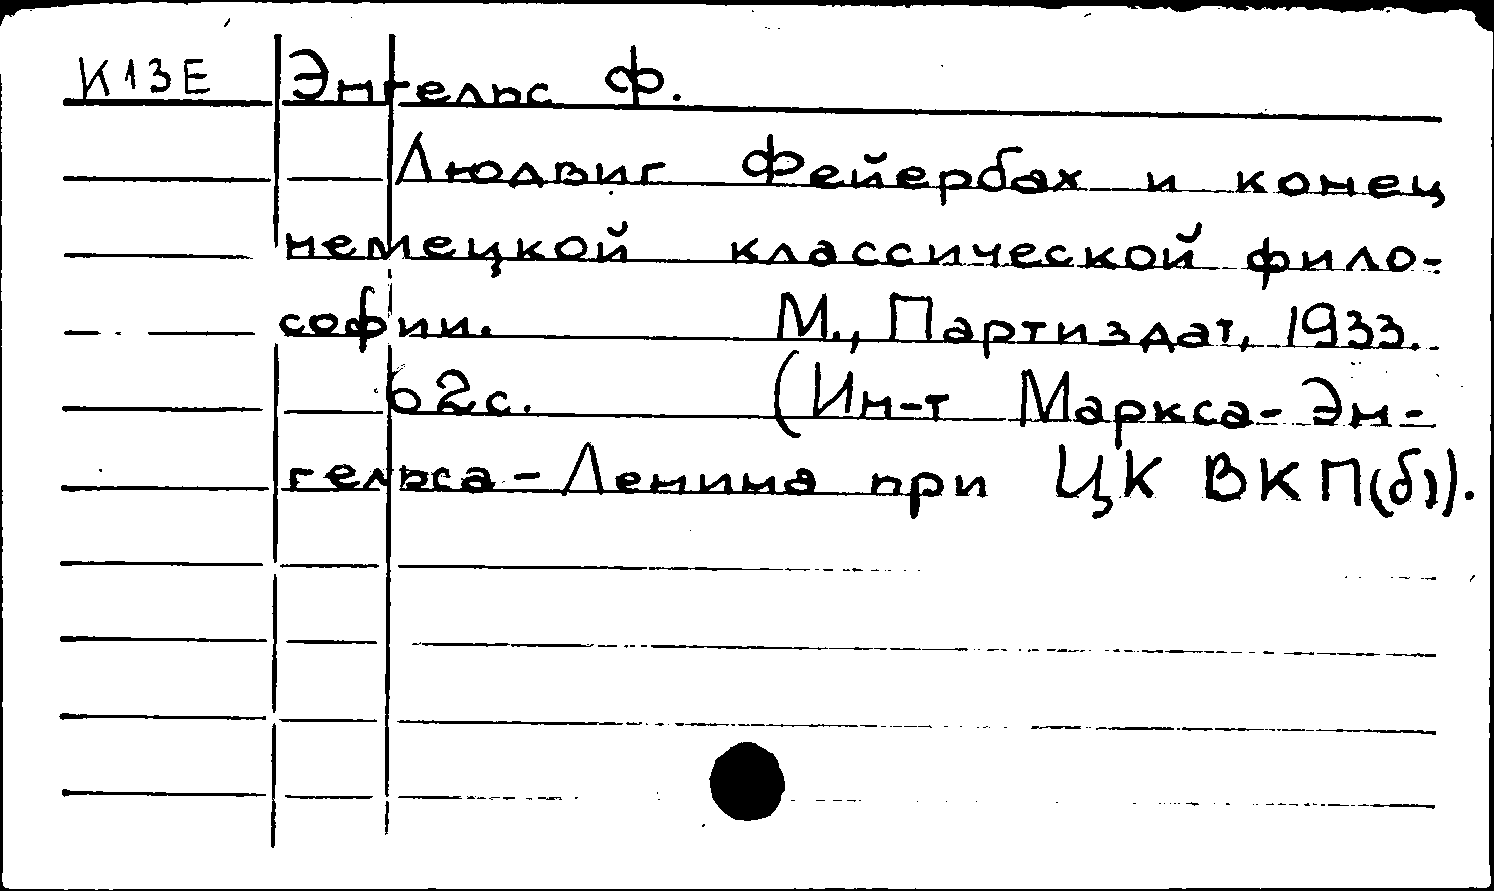 К13Е Энгельс Ф.
Людвиг Фейербах и конец
немецкой классической фило-
софии. М., Партиздат, 1933.
62с. (Ин-т Маркса-Эн-
гельса-Ленина при ЦК ВКП(б)).